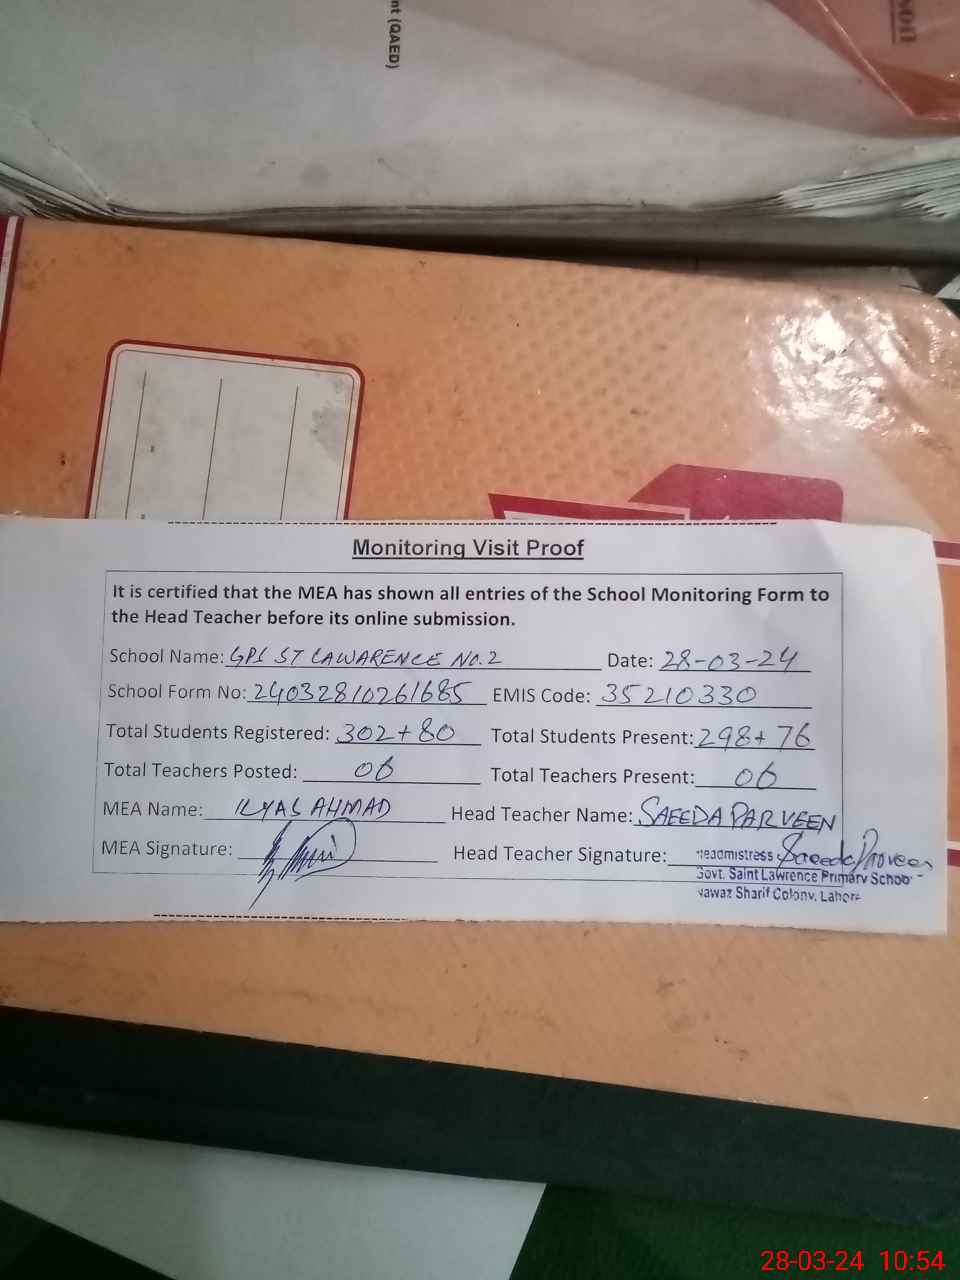 nt (QAED)
son
Monitoring Visit Proof
It is certified that the MEA has shown all entries of the School Monitoring Form to
the Head Teacher before its online submission.
School Name: GPS ST LAWARENCE NO.2 Date: 28-03-24
School Form No: 24032810261685 EMIS Code: 35210330
Total Students Registered: 302+80 Total Students Present: 298+76
Total Teachers Posted: 06 Total Teachers Present: 06
MEA Name: ILYAS AHMAD Head Teacher Name: SAEEDA PARVEEN
MEA Signature: Head Teacher Signature: Headmistress Saeeda Parveen
Govt. Saint Lawrence Primary School
Nawaz Sharif Colony, Lahore
28-03-24 10:54